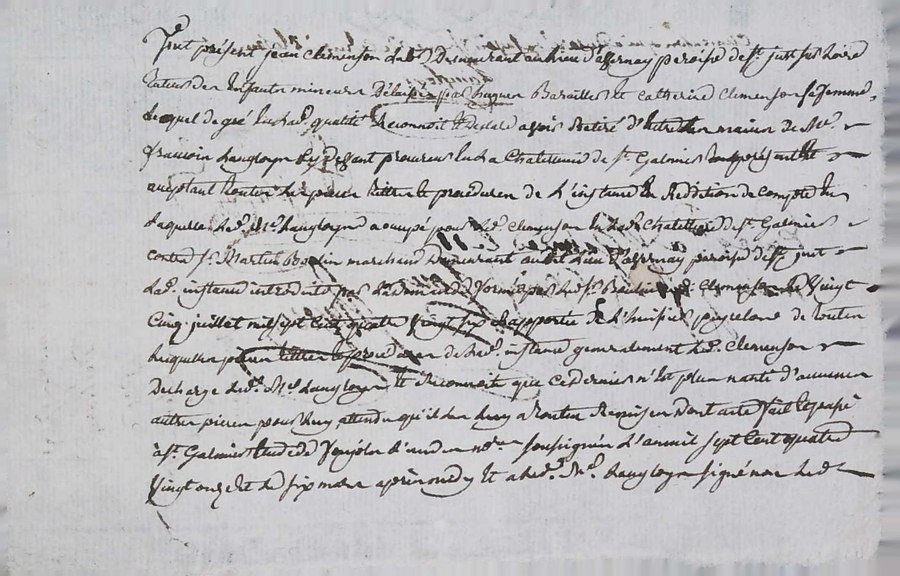 fut présent jean Clemenson lab.r Demeurant au lieu d'assernay paroisse de st. just sur Loire
tuteur des Enfants mineurs Délaissés par hugues Barailler et catherine Clemenson sa femme,
Lequel de gré Enlad.e qualité Reconnoit Et declare avoir Retiré d'Entre les mains de Me.
françois Langloys Cy devant procureur En la Chatellenie de st. Galmier
acceptant toutes les pieces titres Et procedures de L'instance En Reddition de Compte En
Laquelle led. Me. Langloys a occupé pour led. Clemenson En lad. Chatellenie de st. Galmier
contre sr. Martin marchand Demeurant audit lieu d'assernay paroisse de st. just
lad. instance introduite par la demande formée par led. sr. Clemenson Le Vingt
Cinq juillet mil sept Cent quatre Vingt six Rapportée de L'huissier peyrelone de toutes
lesquelles pieces titres Et procedures de lad. instance generalement led. Clemenson
Decharge led. Me. Langloys Et Reconnoit que ce dernier n'Est plus nanti d'aucunes
autres pieces pour luy attendu qu'il les luy a toutes Remises Dont acte fait Et passé
à st. Galmier Etude de l'un des no.res soussignés L'an mil sept Cent quatre
Vingt onze Et le six mars après midy Et a led. Me. Langloys signé non led.